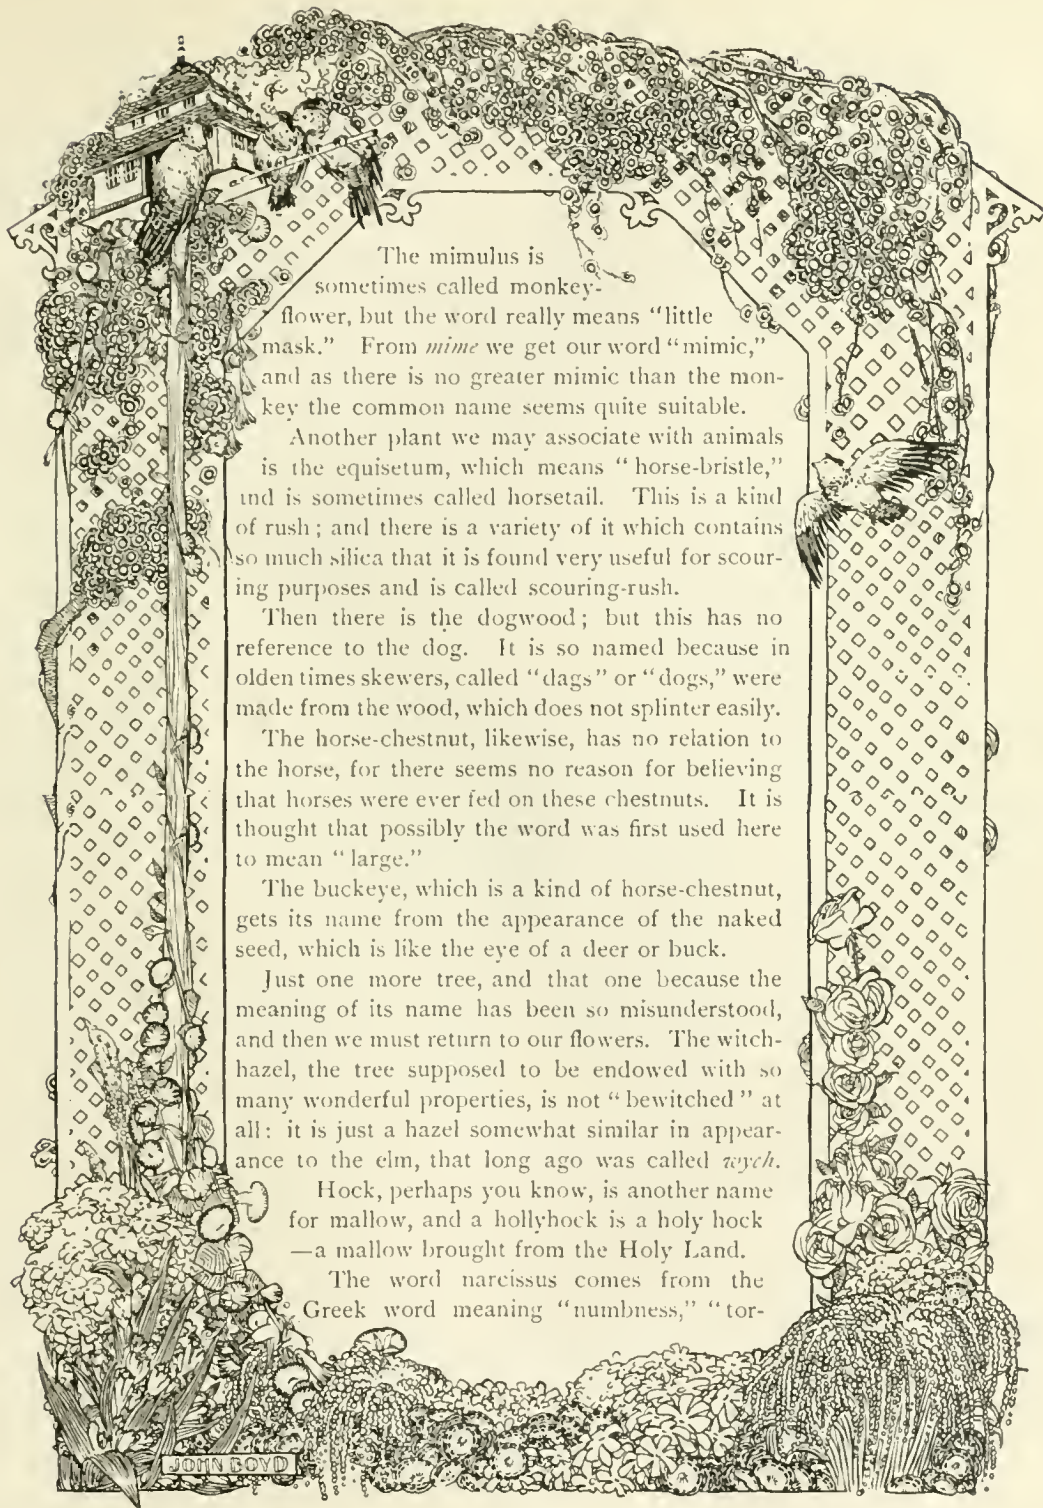 The mimulus is
sometimes called monkey-
flower, but the word really means "little
mask." From mime we get our word "mimic,"
and as there is no greater mimic than the mon-
key the common name seems quite suitable.
Another plant we may associate with animals
is the equisetum, which means "horse-bristle,"
and is sometimes called horsetail. This is a kind
of rush; and there is a variety of it which contains
so much silica that it is found very useful for scour-
ing purposes and is called scouring-rush.
Then there is the dogwood; but this has no
reference to the dog. It is so named because in
olden times skewers, called "dags" or "dogs," were
made from the wood, which does not splinter easily.
The horse-chestnut, likewise, has no relation to
the horse, for there seems no reason for believing
that horses were ever fed on these chestnuts. It is
thought that possibly the word was first used here
to mean "large."
The buckeye, which is a kind of horse-chestnut,
gets its name from the appearance of the naked
seed, which is like the eye of a deer or buck.
Just one more tree, and that one because the
meaning of its name has been so misunderstood,
and then we must return to our flowers. The witch-
hazel, the tree supposed to be endowed with so
many wonderful properties, is not "bewitched" at
all: it is just a hazel somewhat similar in appear-
ance to the elm, that long ago was called wych.
Hock, perhaps you know, is another name
for mallow, and a hollyhock is a holy hock
—a mallow brought from the Holy Land.
The word narcissus comes from the
Greek word meaning "numbness," "tor-
JOHN BOYD